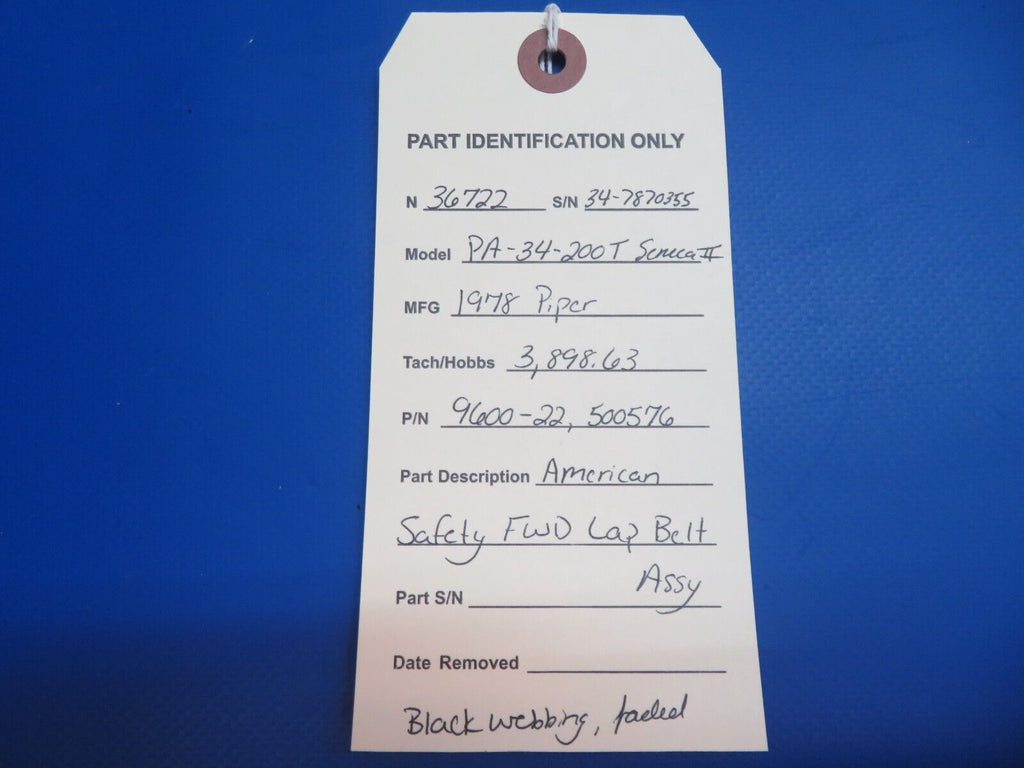 PART IDENTIFICATION ONLY
N 36722 S/N 34-7870355
Model PA-34-200T Seneca II
MFG 1978 Piper
Tach/Hobbs 3,898.63
P/N 9600-22, 500576
Part Description American
Safety FWD Lap Belt
Assy
Part S/N
Date Removed
Black webbing, faded